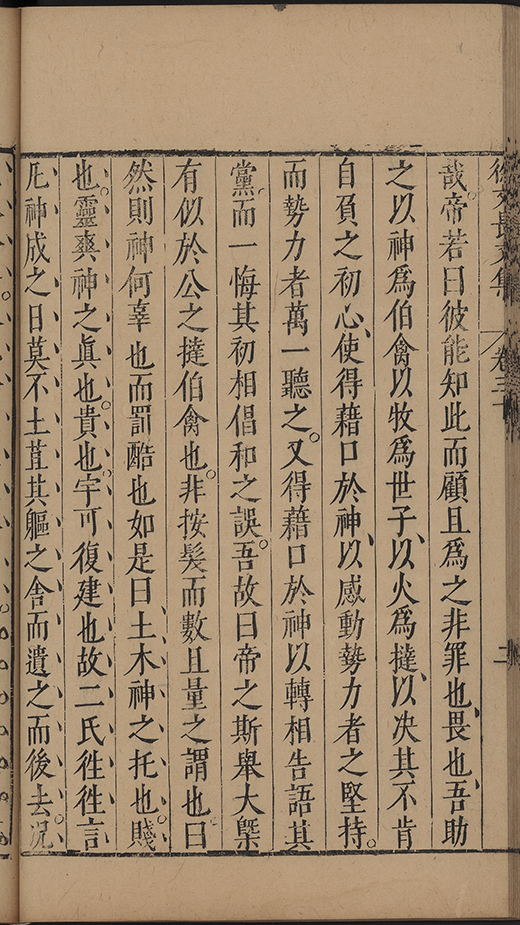 徐文長文集 卷三十 二
哉。帝若曰彼能知此而顧且爲之非罪也、畏也、吾助
之以神爲伯禽以牧爲世子、以火爲撻、以决其不肯
自負之初心、使得藉口於神、以感動勢力者之堅持。
而勢力者萬一聽之。又得藉口於神以轉相告語其
黨。而一悔其初相倡和之誤。吾故曰帝之斯舉大槩
有似於公之撻伯禽也。非按髮而數且量之謂也曰
然則神何辜也而罰酷也如是曰、土木神之托也。賤
也。靈爽神之眞也。貴也。宇可復建也故二氏徃徃言
凡神成之日莫不土苴其軀之舍而遺之而後去。况